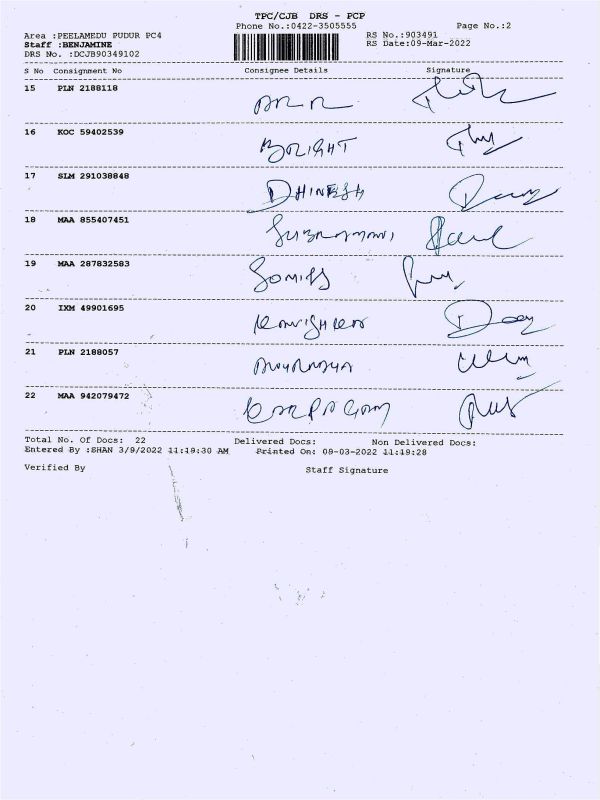 TPC/CJB DRS - PCP
Phone No.:0422-3505555 Page No.:2
Area :PEELAMEDU PUDUR PC4 RS No.:903491
Staff :BENJAMINE RS Date:09-Mar-2022
DRS No. :DCJB90349102
S No Consignment No Consignee Details Signature
15 PLN 2188118
16 KOC 59402539 BRIGHT
17 SLM 291038848 DHINESH
18 MAA 855407451
19 MAA 287832583
20 IXM 49901695
21 PLN 2188057
22 MAA 942079472
Total No. Of Docs: 22 Delivered Docs: Non Delivered Docs:
Entered By :SHAN 3/9/2022 11:19:30 AM Printed On: 09-03-2022 11:19:28
Verified By Staff Signature